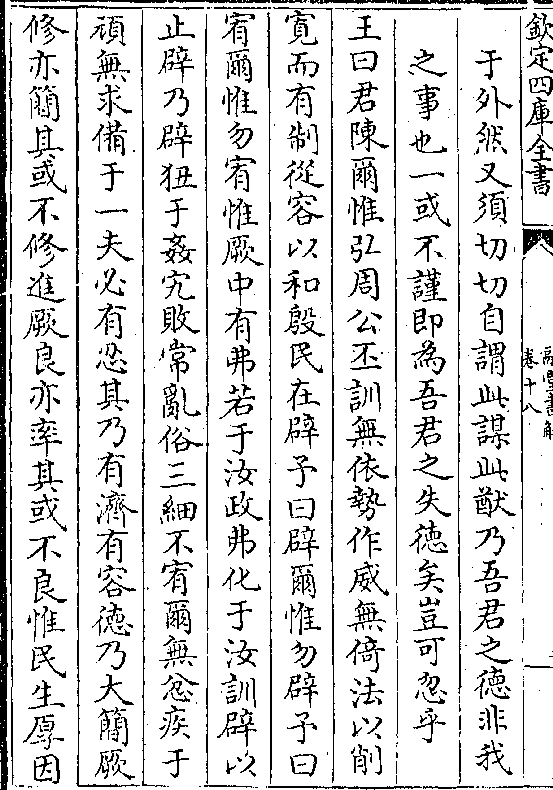 欽定四庫全書
卷十八
于外然又須切切自謂此謀此猷乃吾君之德非我
之事也一或不謹即為吾君之失德矣豈可忽乎
王曰君陳爾惟弘周公丕訓無依勢作威無倚法以削
寛而有制從容以和殷民在辟予曰辟爾惟勿辟予曰
宥爾惟勿宥惟厥中有弗若于汝政弗化于汝訓辟以
止辟乃辟狃于姦宄敗常亂俗三細不宥爾無忿疾于
頑無求備于一夫必有忍其乃有濟有容德乃大簡厥
修亦簡其或不修進厥良亦率其或不良惟民生厚因